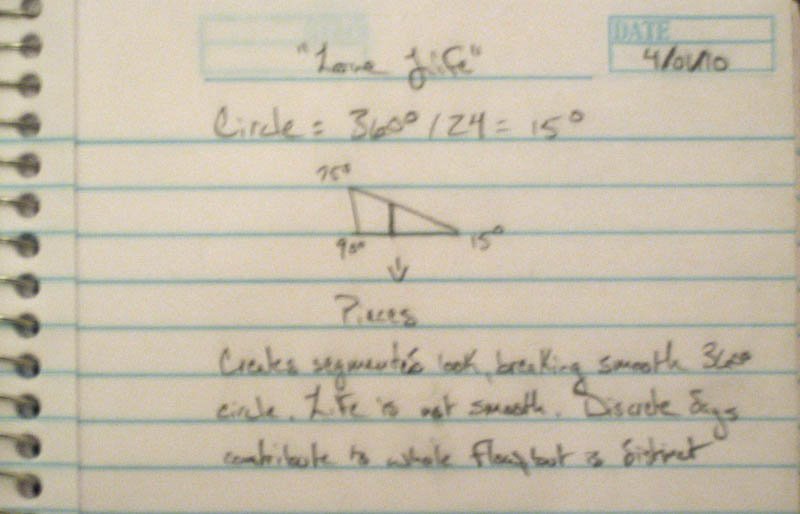 DATE
4/01/10
"Love Life"
Circle = 360° / 24 = 15°
75°
90° 15°
Pieces
Creates segmented look, breaking smooth 360°
circle. Life is not smooth. Discrete days
contribute to whole flow but is distinct